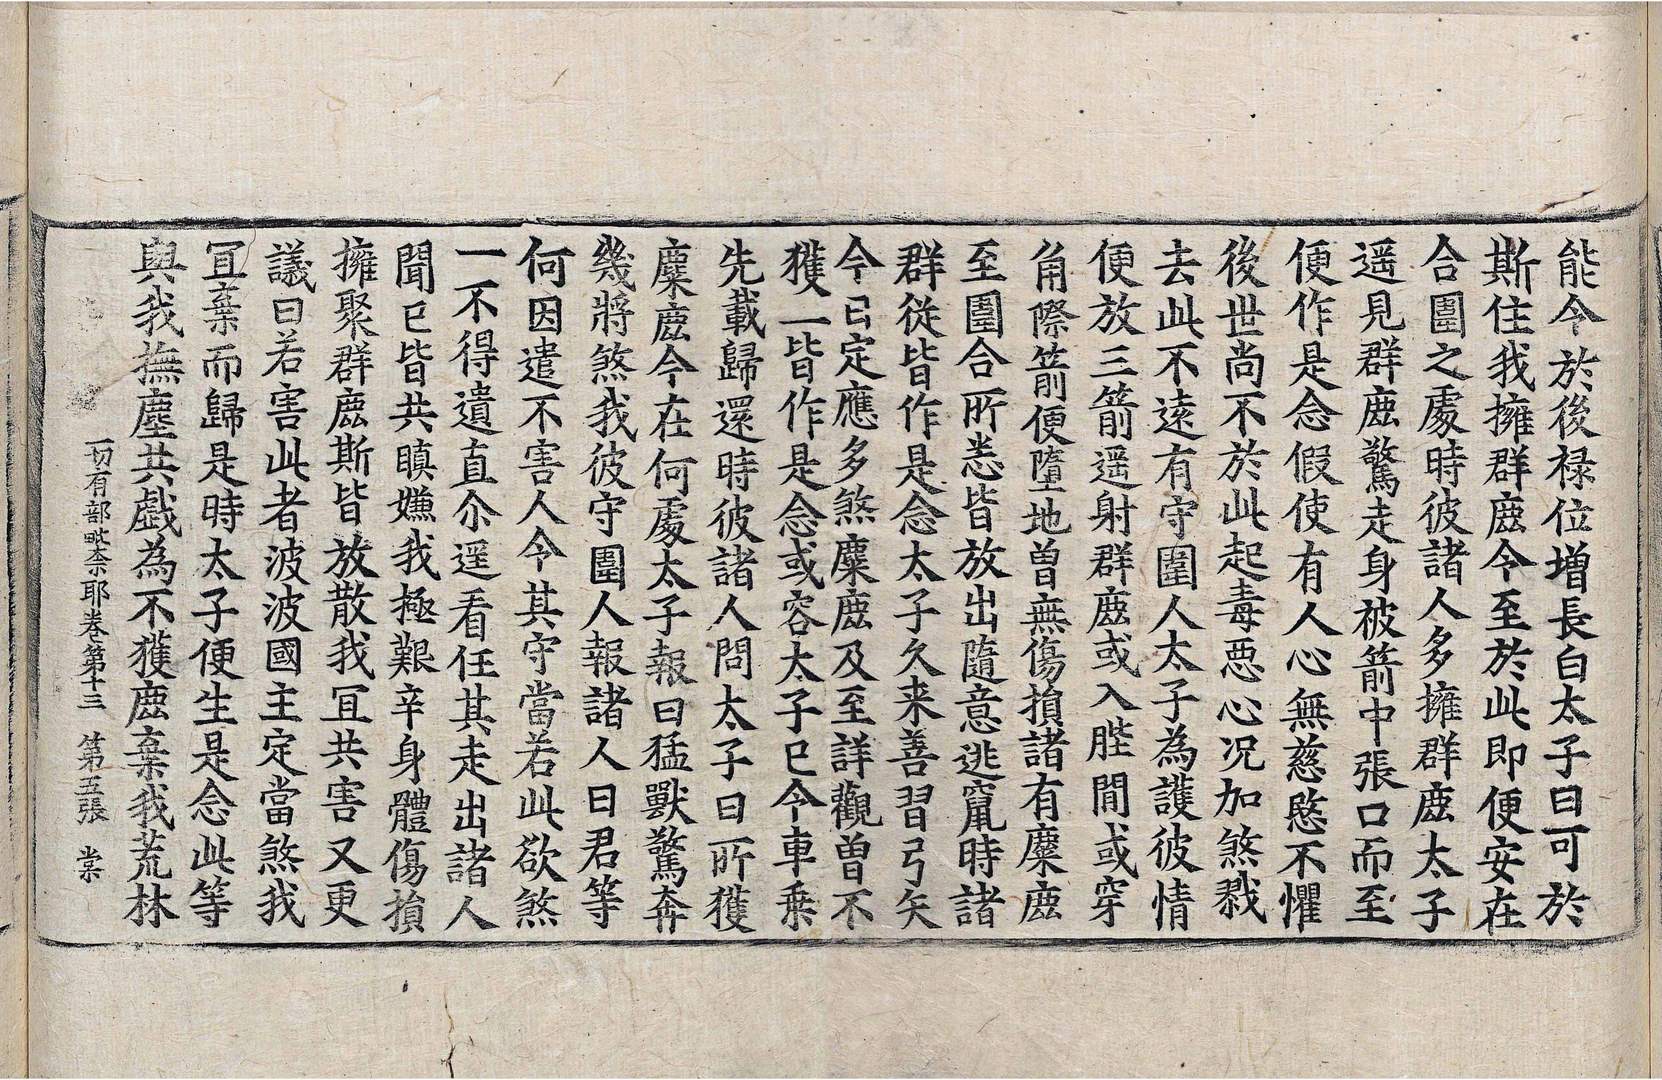 能令於後祿位增長白太子曰可於
斯住我擁群鹿令至於此即便安在
合圍之處時彼諸人多擁群鹿太子
遥見群鹿驚走身被箭中張口而至
便作是念假使有人心無慈愍不懼
後世尚不於此起毒惡心况加煞戮
去此不遠有守圍人太子為護彼情
便放三箭遥射群鹿或入䏶間或穿
角際箭便墮地曾無傷損諸有麋鹿
至圍合所悉皆放出隨意逃竄時諸
群從皆作是念太子久来善習弓矢
今已定應多煞麋鹿及至詳觀曾不
獲一皆作是念或容太子已令車乗
先載歸還時彼諸人問太子曰所獲
麋鹿今在何處太子報曰猛獸驚奔
幾將煞我彼守圍人報諸人曰君等
何因遣不害人令其守當若此欲煞
一不得遺直尒遥看任其走出諸人
聞已皆共瞋嫌我極艱辛身體傷損
擁聚群鹿斯皆放散我冝共害又更
議曰若害此者波波國主定當煞我
冝棄而歸是時太子便生是念此等
與我撫塵共戲為不獲鹿棄我荒林
一切有部毗奈耶卷第十三 第五張 棠